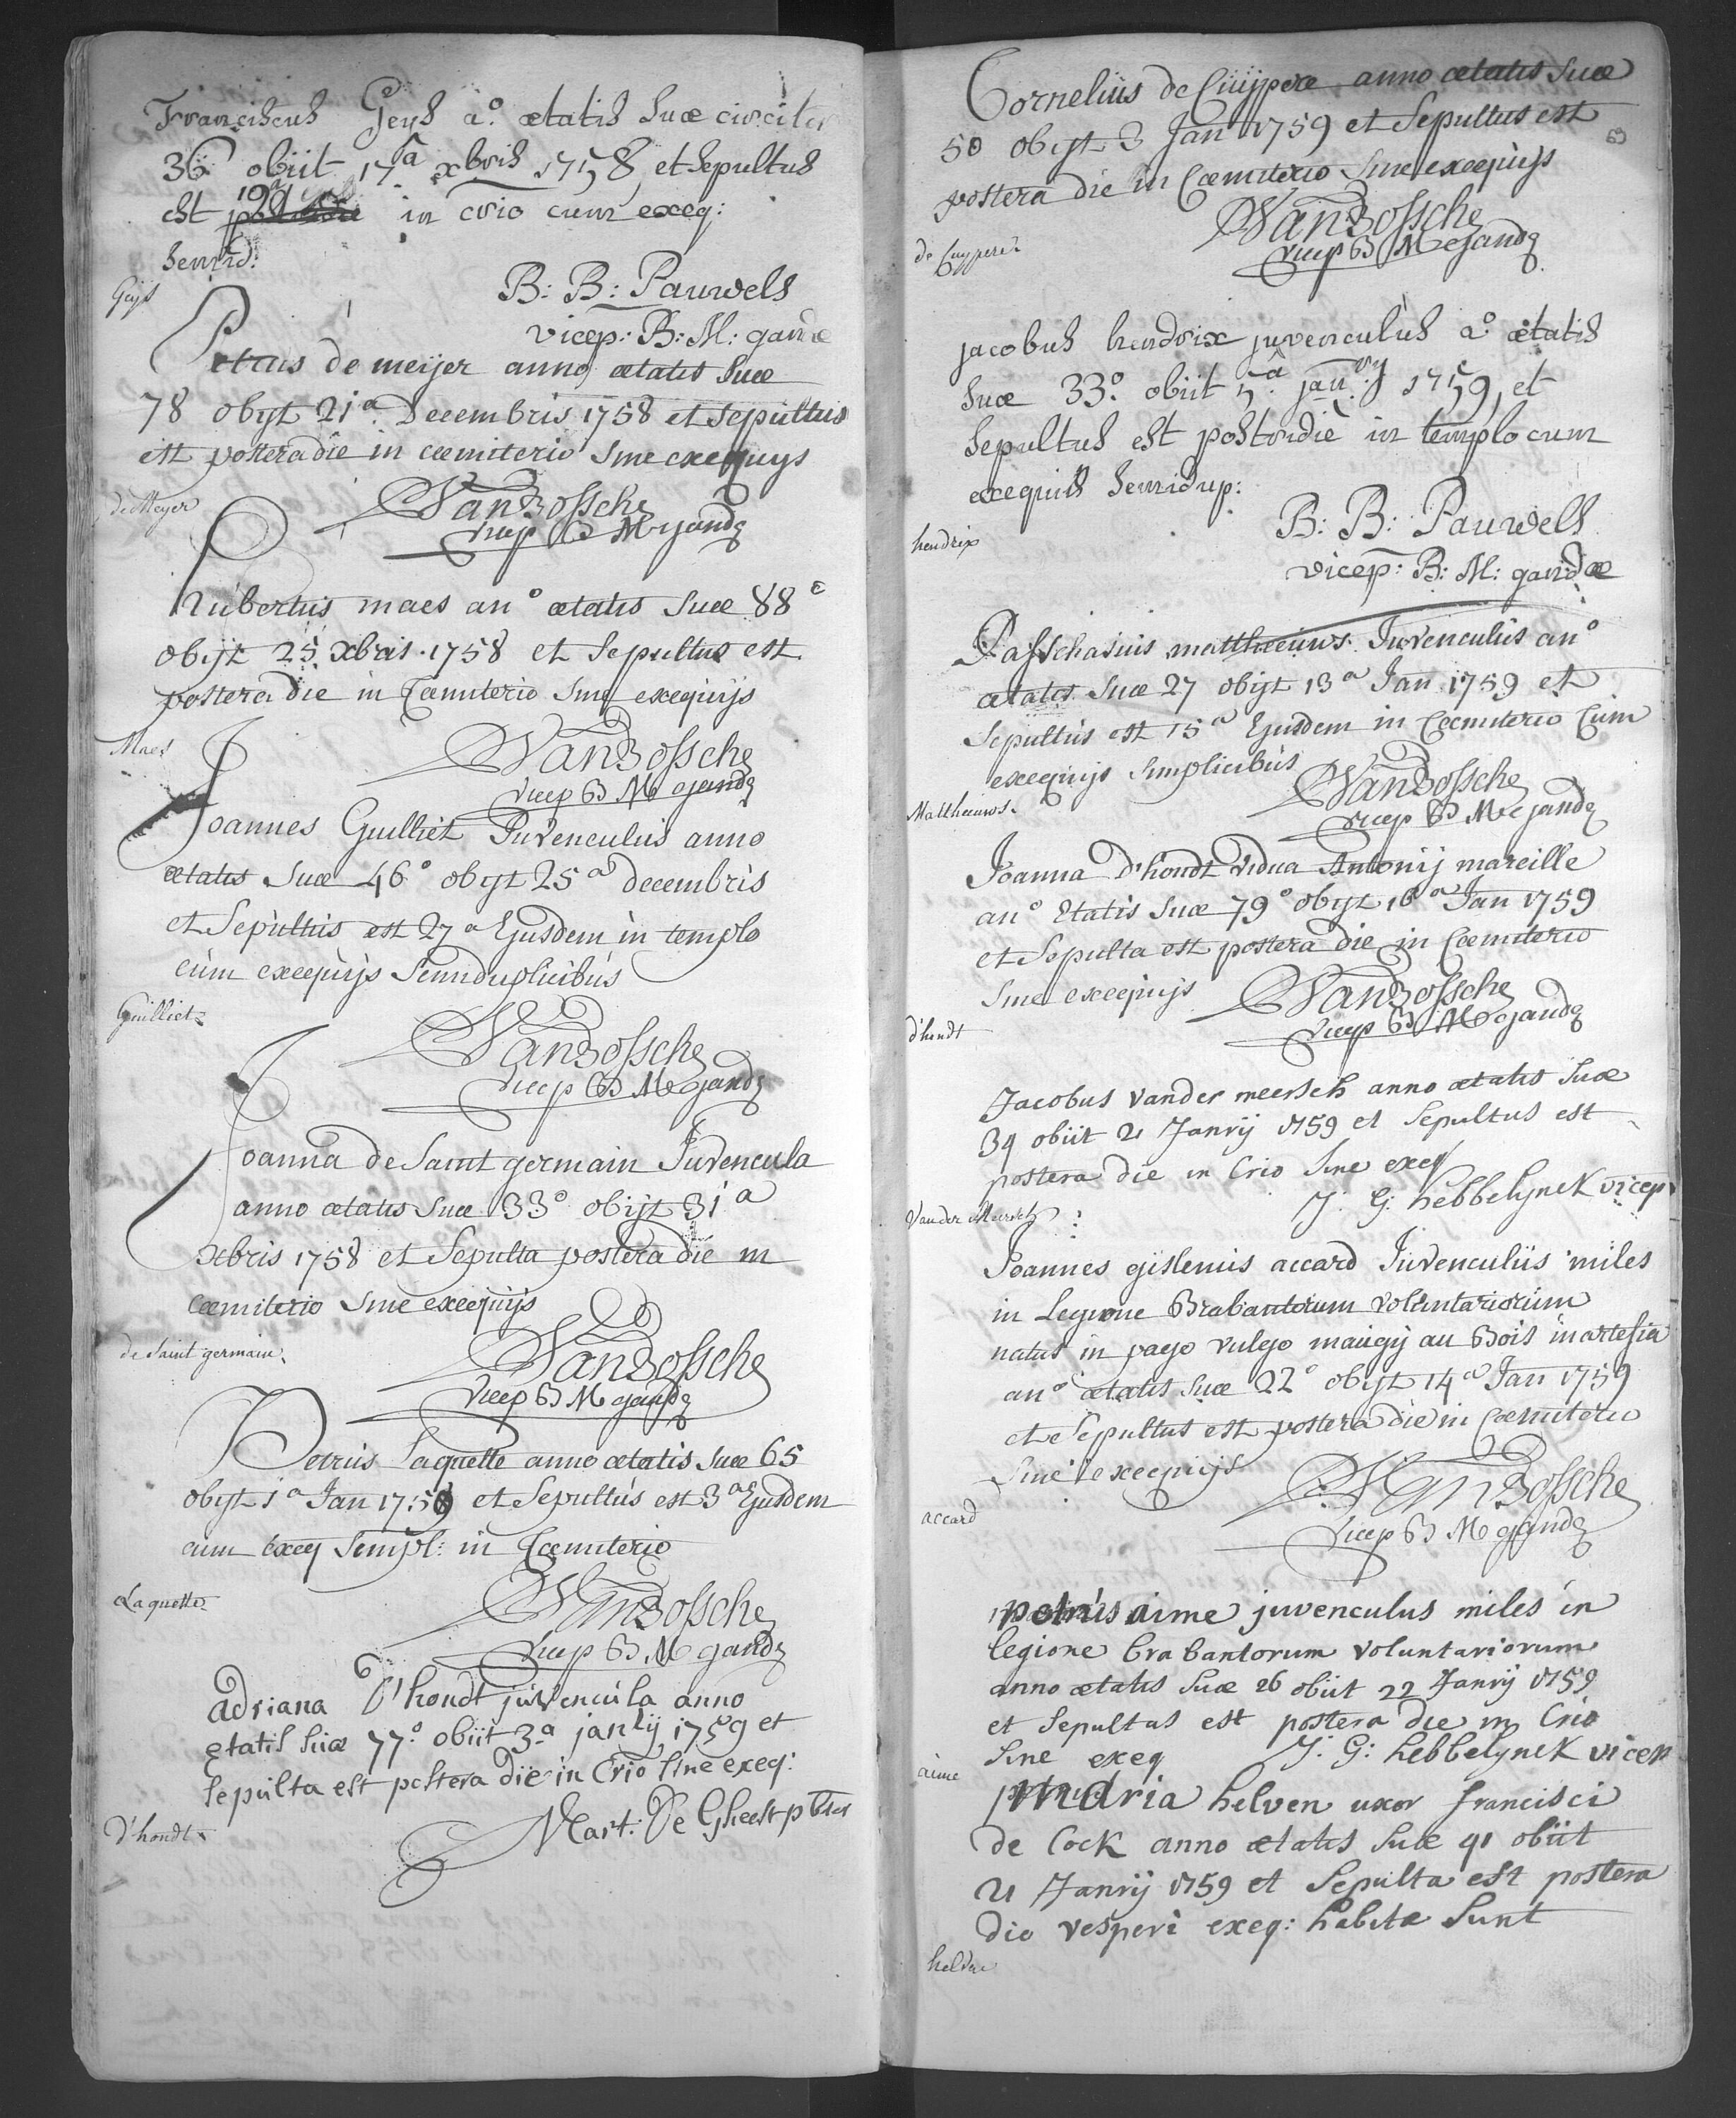 Franciscus Geys a.o ætatis suæ circiter
36 obiit 17a xbris 1758, et sepultus
est 19a in crio cum exeq:
semid:
Geys
B: B: Pauwels
vicep: B: M: gandæ
Petrus de meijer anno ætatis suæ
78 obyt 21a Decembris 1758 et sepultus
est postera die in cœmiterio sine exequys
de Meyer
VanBossche
vicep B M gandæ
Rubertus maes an.o ætatis suæ 88
obijt 25 xbris 1758 et sepultus est
postera die in cœmiterio sine exequijs
Maes
VanBossche
vicep B M gandæ
Joannes Guilliet Juvenculus anno
ætatis suæ 46o obyt 25a decembris
et sepultus est 27a Ejusdem in templo
cum exequijs semiduplicibus
Guilliet
VanBossche
vicep B M gandæ
Joanna de Saint germain Juvencula
anno ætatis suæ 33o obijt 31a
xbris 1758 et sepulta postera die in
cœmiterio sine exequijs
de Saint germain
VanBossche
vicep B M gandæ
Petrus Laquette anno ætatis suæ 65
obyt 1a Jan 1759 et sepultus est 3a Ejusdem
cum exeq simpl: in Cœmiterio
Laquette
VanBossche
vicep B M gandæ
adriana D'hondt juvencula anno
etatis suæ 77o obiit 3a janrij 1759 et
sepulta est postera die in Crio sine exeq:
D'hondt
Mart: De Gheest pbter
Cornelius de Cuypere anno ætatis suæ
50 obyt 3 Jan 1759 et sepultus est
postera die in Cœmiterio sine exequijs
de Cuypere
VanBossche
vicep B M gandæ
jacobus hendrix juvenculus a.o ætatis
suæ 33o obiit 5a janry 1759, et
sepultus est postridie in templo cum
exequiis semidup:
hendrix
B: B: Pauwels
vicep: B: M: gandæ
Passchasius mattheeuws Juvenculus an.o
ætatis suæ 27 obijt 13a Jan 1759 et
sepultus est 15a Ejusdem in Cœmiterio Cum
exequijs simplicibus
Mattheeuws
VanBossche
vicep B M gandæ
Joanna D'hondt vidua Antonij mareille
an.o Etatis suæ 79o obyt 16a Jan 1759
et sepulta est postera die in Cœmiterio
sine exequijs
d'hondt
VanBossche
vicep B M gandæ
Jacobus Vander meersch anno ætatis suæ
39 obiit 21 Janrij 1759 et sepultus est
postera die in Crio sine exeq
J: G: hebbelynck vicep
Vander Meersch
Joannes gislenus accard Juvenculus miles
in Legione Brabantorum voluntariorum
natus in pago vulgo maugy au Bois in artesia
an.o ætatis suæ 22o obijt 14a Jan 1759
et sepultus est postera die in Cœmiterio
sine exequijs
accard
VanBossche
vicep B M gandæ
petrus aime juvenculus miles in
legione brabantorum voluntariorum
anno ætatis suæ 26 obiit 22 Janrij 1759
et sepultus est postera die in Crio
sine exeq
J: G: hebbelynck vicep
aime
maria helven uxor francisci
de Cock anno ætatis suæ 41 obiit
21 Janrij 1759 et sepulta est postera
die vesperi exeq: habitæ sunt
helven